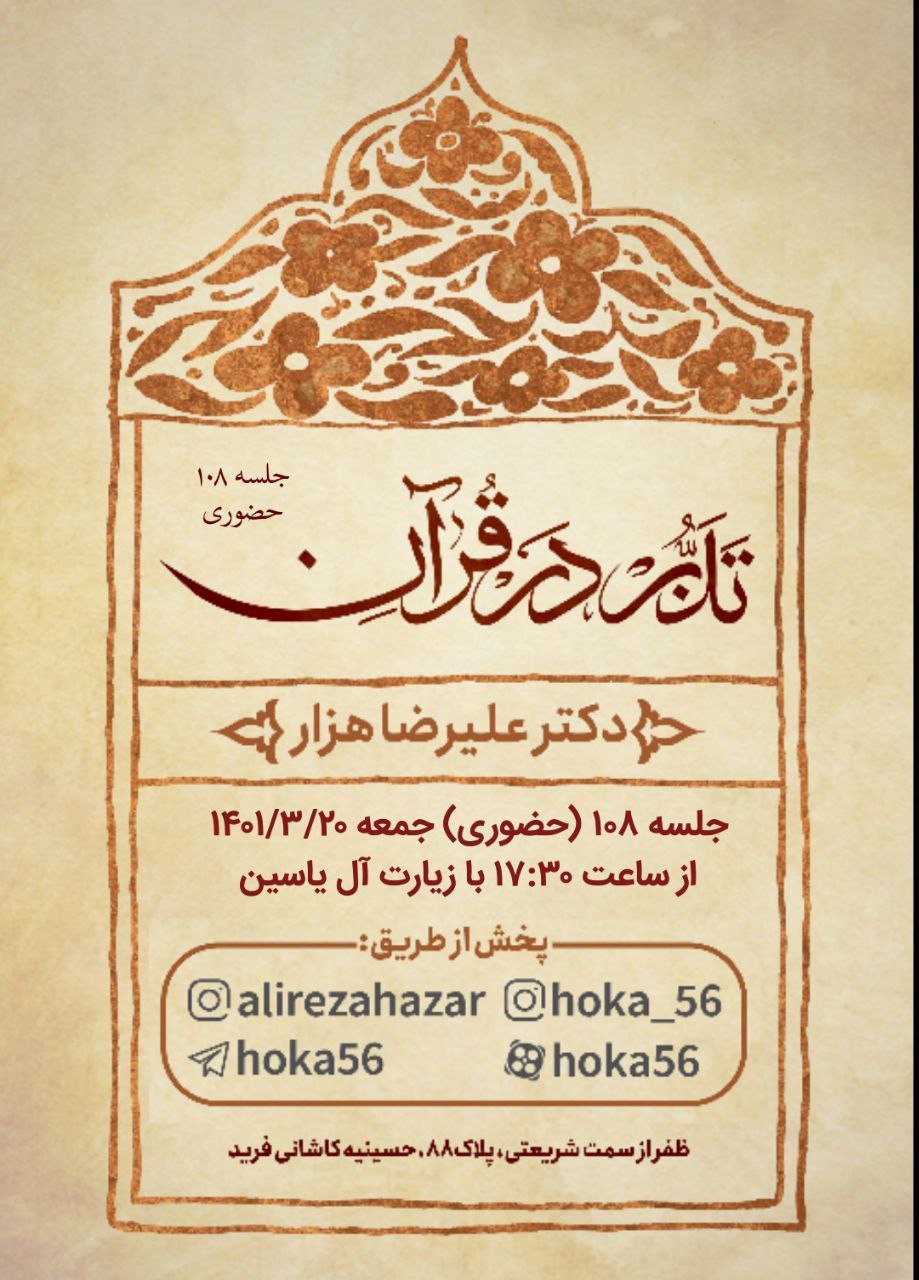 جلسه ۱۰۸
حضوری
تَدَبُّر دَر قُرآنِ
دکتر علیرضا هزار
جلسه ۱۰۸ (حضوری) جمعه ۱۴۰۱/۳/۲۰
از ساعت ۱۷:۳۰ با زیارت آل یاسین
پخش از طریق:
alirezahazar hoka_56
hoka56 hoka56
ظفر از سمت شریعتی، پلاک ۸۸، حسینیه کاشانی فرید